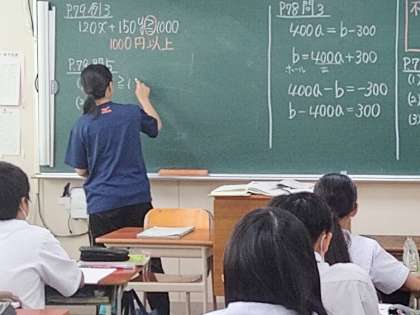 P.79 問3
120x+150y≧1000
1000円以上
P.79 問5
≧1
P.78 問3
400a = b-300
b = 400a+300
400a-b = -300
b-400a = 300
P.7
(1)
(2)
(3)